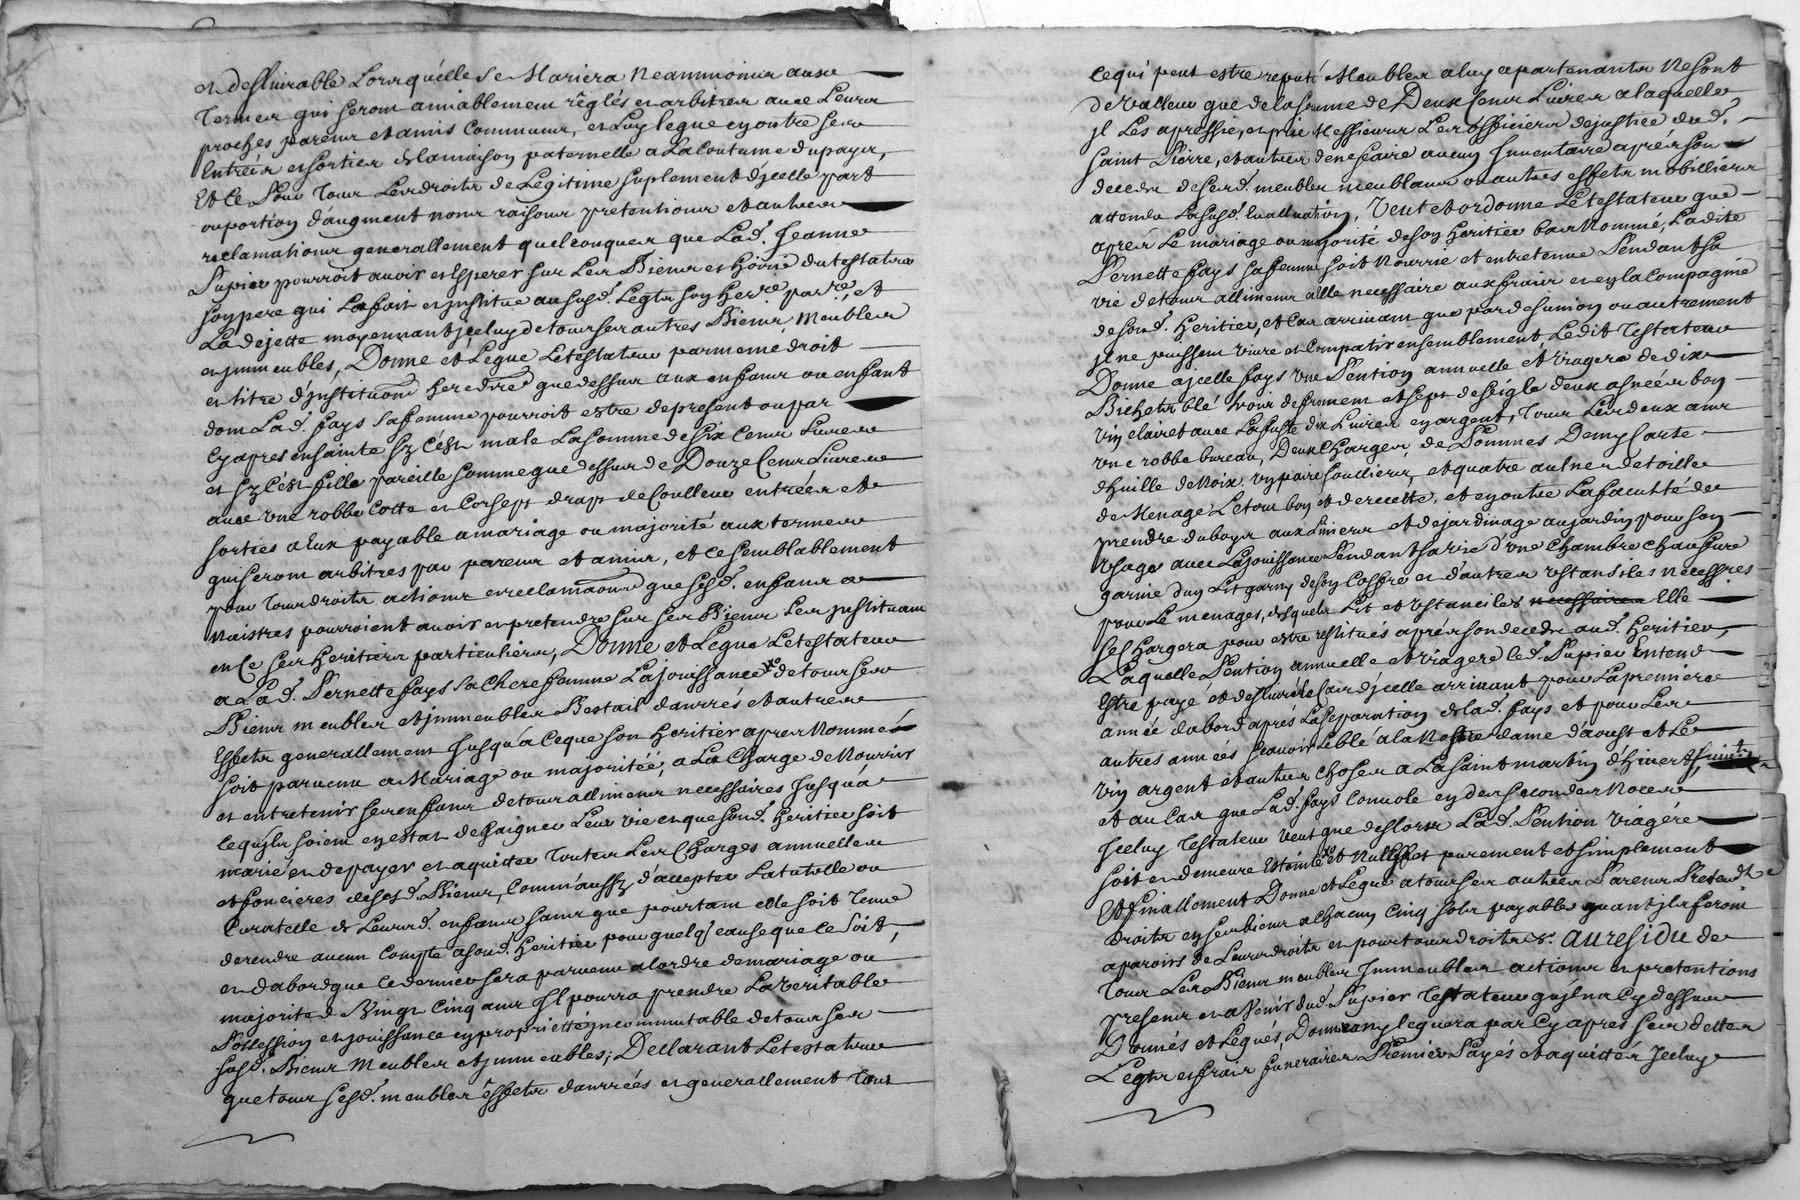 et deslivrable Lorsquelle se Mariera Neammoins aux
Termes qui seront amiablement réglés et arbitres avec Leurs
proches parens et amis Communs, et Luy legue en outre ses
Entrées et sorties de la maison paternelle a La Coutume du payis,
Et Ce Pour Tous Les droits de Legitime suplement d'jcelle part
ou portion d'augment noms raisons pretentions et autres
reclamations generallement quelconques que Lad. Jeanne
Pupier pourroit avoir et Esperer sur Les Biens et hoirie du testateur
son pere qui La fait et jnstitue au susd. Legts son Herre. parre. et
La dejette moyennant jceluy de tous ses autres Biens Meubles
et jmmeubles, Donne et Legue Letestateur parmeme droit
et titre d'jnstitution heredre que dessus aux enfans ou enfant
dont Lad. fays sa femme pourroit estre de present ou par
cy apres ensainte sy c'est male La somme de six Cens Livres
et sy C'est fille pareille somme que dessus de Douze Cens Livres
avec une robbe Cotte et Corsept drap de Coulleur entrées et
sorties a Eux payable a mariage ou majorité aux termes
qui seront arbitres par parens et amis, et ce semblablement
pour Tous droits actions et reclamaons que sesd. enfans a
Naistres pourroient avoir et pretendre sur ses Biens Les jnstituant
en Ce ses Heritiers particuliers, Donne et Legue Letestateur
a Lad. Pernette fays sa Chere femme La jouissance de tous ses
Biens meubles et jmmeubles Bestail danrrés et autres
Effets generallement Jusqu'a Ceque son Heritier apres Nommé
soit parvenu a Mariage ou majoritée, a La Charge de Nourrir
et entretenir ses enfans de tous allimens necessaires Jusqu'a
Ce quils soient en estat de gaigner Leur vie et que sond. Heritier soit
marié et de payer et aquitter Toutes Les Charges annuelles
et foncieres de sesd. Biens, Comm'aussy d'accepter La tutelle ou
Curatelle de Leursd. enfans sans que pourtant elle soit Tenue
de rendre aucun Compte a sond. Heritier pour quelq cause que Ce Soit,
et d'abord que Ce dernier sera parvenu a l'ordre de mariage ou
majorité de Vingt Cinq ans Jl pourra prendre La veritable
Possession et jouissance en proprietté jncommutable de tous ses
susd. Biens Meubles et jmmeubles; Declarant Letestateur
que tous sesd. meubles Effets danrrées et generallement Tout
Ce qui peut estre reputé Meubles a luy apartenants Ne sont
de valleur que de la somme de Deux Cens Livres a laquelle
jl Les apressie, et prie Messieurs Les officiers de justice dud.
saint Pierre, et autres de ne faire aucun Jnventaire aprés son
decedz de sesd. meubles meublans ou autres effets mobilliers
attendu La susd. Evalluation, Veut et ordonne Letestateur que
aprés Le mariage ou majorité de son Heritier bas Nommé, La dite
Pernette fays sa femme soit Nourrie et entretenue Pendant sa
vie de tous allimens a Elle necessaire aux frais et en la Compagnie
de sond. Heritier, et Cas arrivant que par desunion ou autrement
jl ne puissent vivre et Compatir ensemblement Ledit Testateur
Donne a jcelle fays une Pention annuelle et Viagere de dix
Bichets blé trois de froment et sept de seigle deux asnées bon
vin clairet avec La fuste dix Livres en argent, Tous Les deux ans
une robbe bureau, Deux Charges de Pommes Demy Carte
d'huille de Noix un paire soulliers, et quatre aulnes de toille
de Menage Le tout bon et de recette. et en outre La faculté de
prendre du boys aux Liniers et de jardinage au jardin pour son
usage avec La jouissance Pendant sa vie d'une chambre chaufure
garnie d'un Lit garny de son Coffre et d'autres ustansiles necessres
pour Le menages, desquels Lit et ustanciles necessaires Elle
se Chargera pour estre restitués aprés son decedz aud. Heritier,
Laquelle Pention annuelle et viagere led. Pupier Entend
Estre payé et deslivré Le Cas d'jcelle arrivant pour La premiere
année d'abord aprés La separation de lad. fays et pour Les
autres années scavoir Le blé a la Nostre dame d'aoust et Le
vin argent et autres choses a La saint martin d'hivert
et au Cas que Lad. fays Convole en des secondes Noces
Jceluy Testateur veut que des lors Lad. Pention Viagére
soit et demeure Esteinte et Nulle et purement et simplement
Et finallement Donne et Legue a tous ses autres Parens Pretendt
Droits en ses biens a Chacun Cinq sols payable quant jls feront
aparoirs de Leurs droits et pour tous droits &. au residu de
Tous Les Biens meubles Jmmeubles actions et pretentions
presens et a Venir dud. Pupier Testateur qu'jl na Cy dessus
Donnés et Legués, Donnera ny leguera par Cy apres ses dettes
Legts et frais funeraires Premier Payés et aquittés Jceluy